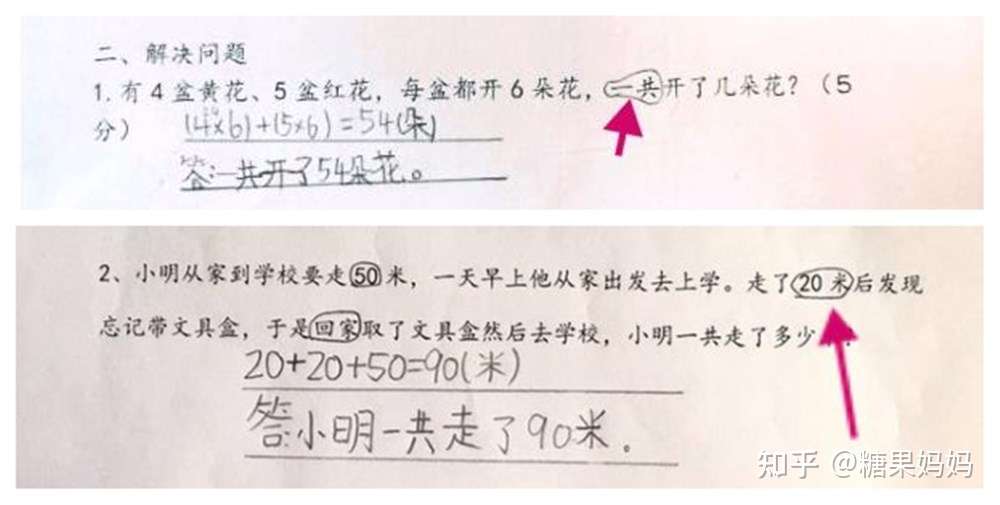 二、解决问题
1.有4盆黄花、5盆红花，每盆都开6朵花，一共开了几朵花？（5
分） (4×6)+(5×6)=54(朵)
答:一共开了54朵花。
2、小明从家到学校要走50米，一天早上他从家出发去上学。走了20米后发现
忘记带文具盒，于是回家取了文具盒然后去学校，小明一共走了多少
20+20+50=90(米)
答:小明一共走了90米.
知乎 @糖果妈妈